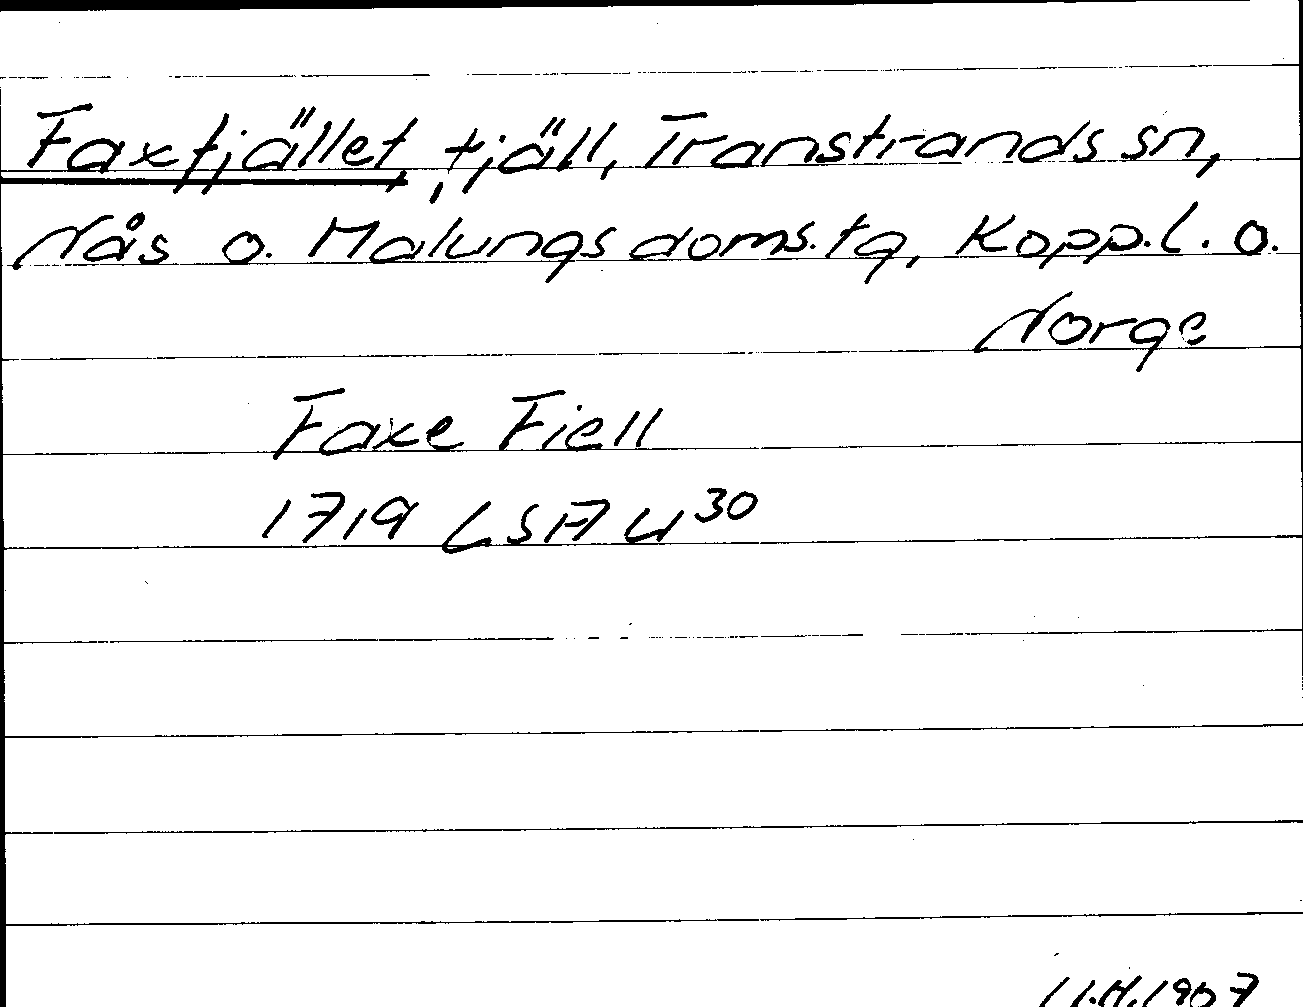 Faxfjället, fjäll, Transtrands sn,
Nås o. Malungs doms. tg, Kopp. l. o.
Norge
Faxe Fiell
1719 LSA U30